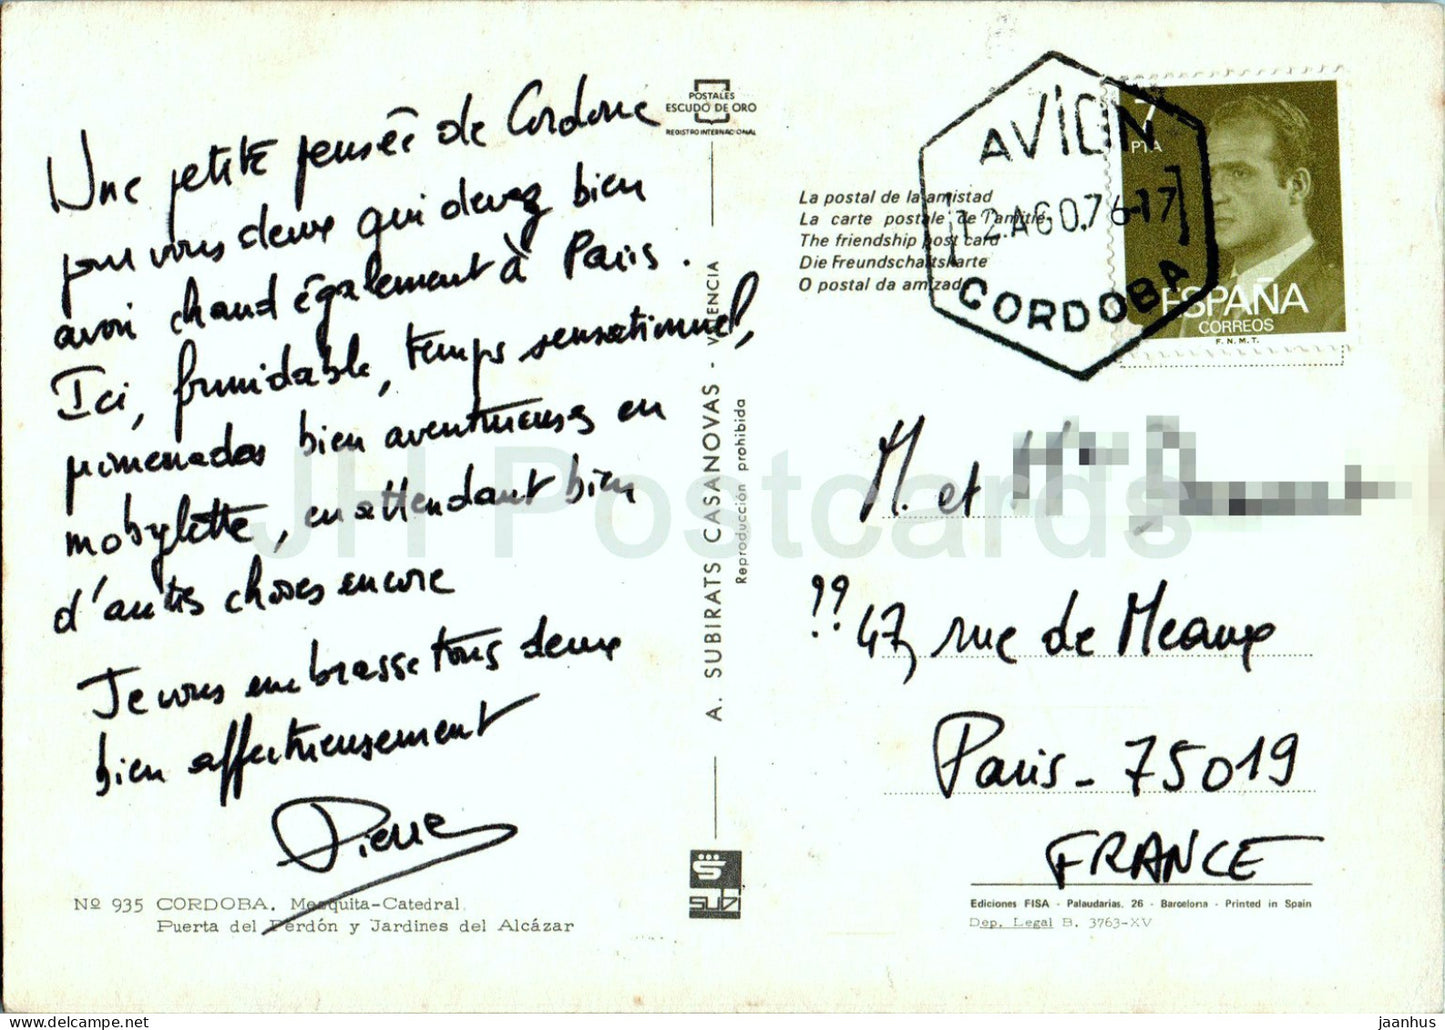 Une petite pensée de Cordoue
pour vous deux qui devez bien
avoir chaud également à Paris.
Ici, formidable, temps sensationnel,
promenades bien aventureuses en
mobylette, en attendant bien
d'autres choses encore
Je vous embrasse tous deux
bien affectueusement
Pierre
Nº 935 CORDOBA. Mezquita-Catedral.
Puerta del Perdón y Jardines del Alcázar
POSTALES
ESCUDO DE ORO
REGISTRO INTERNACIONAL
A. SUBIRATS CASANOVAS - VALENCIA
Reproducción prohibida
subi
La postal de la amistad
La carte postale de l'amitié
The friendship post card
Die Freundschaftskarte
O postal da amizade
AVION
12.AGO.76-17
CORDOBA
7
PTA
ESPAÑA
CORREOS
F.N.M.T.
M. et
?? 47, rue de Meaux
Paris - 75019
FRANCE
Ediciones FISA - Palaudarias, 26 - Barcelona - Printed in Spain
Dep. Legal B. 3763-XV
JH Postcards
jaanhus
www.delcampe.net